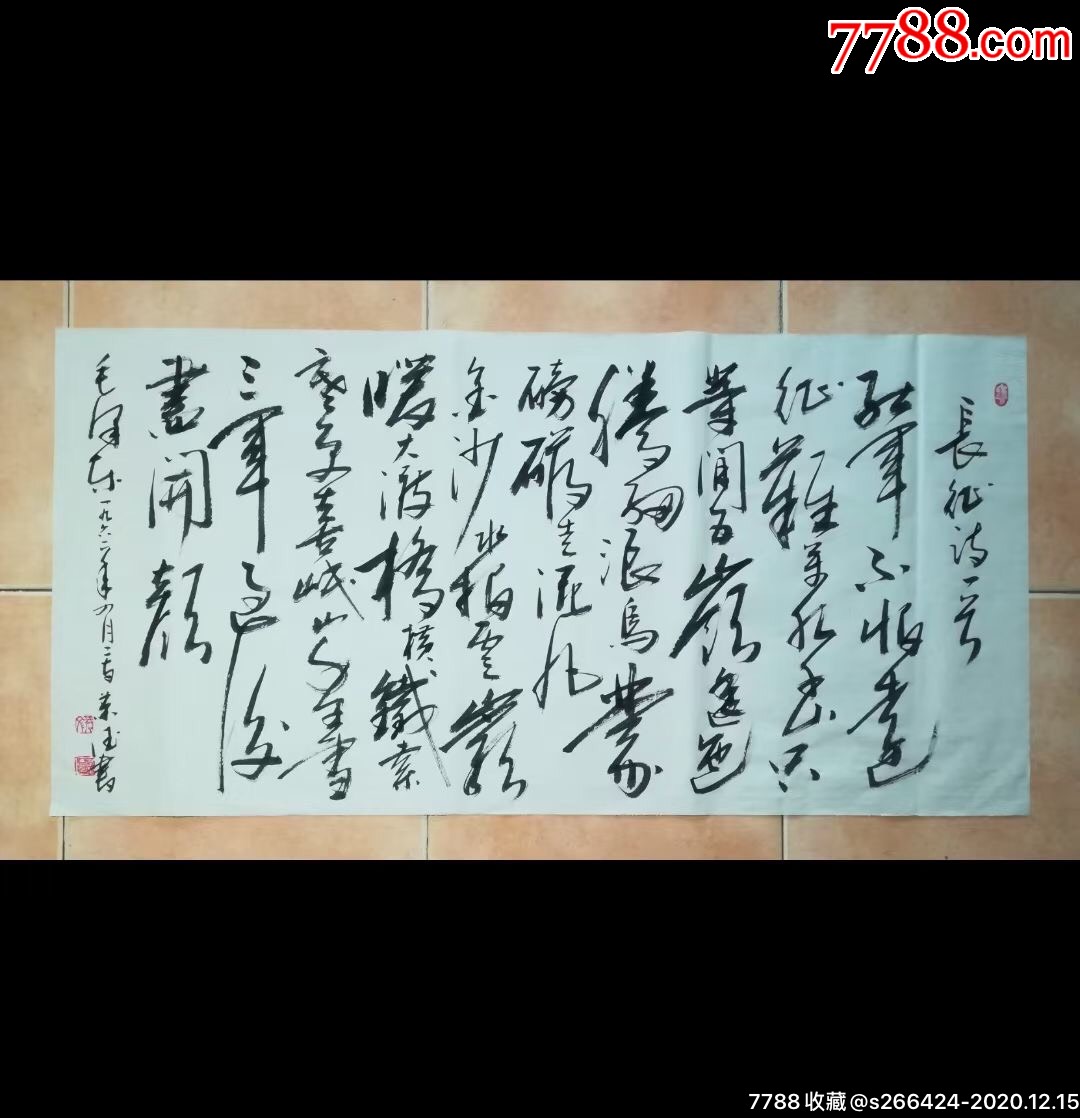 7788.com
長征詩一首
紅軍不怕遠
征難萬水千山只
等閒五嶺逶迤
騰細浪烏蒙
磅礴走泥丸
金沙水拍雲
暖大渡橋橫鐵索
寒更喜岷山千里雪
三軍過後
盡開顏
毛澤東一九六二年四月二十日德書
7788收藏@s266424-2020.12.15